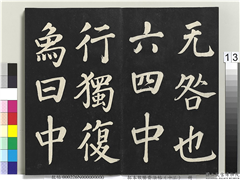 无咎也
六四中
行獨復
象曰中
13